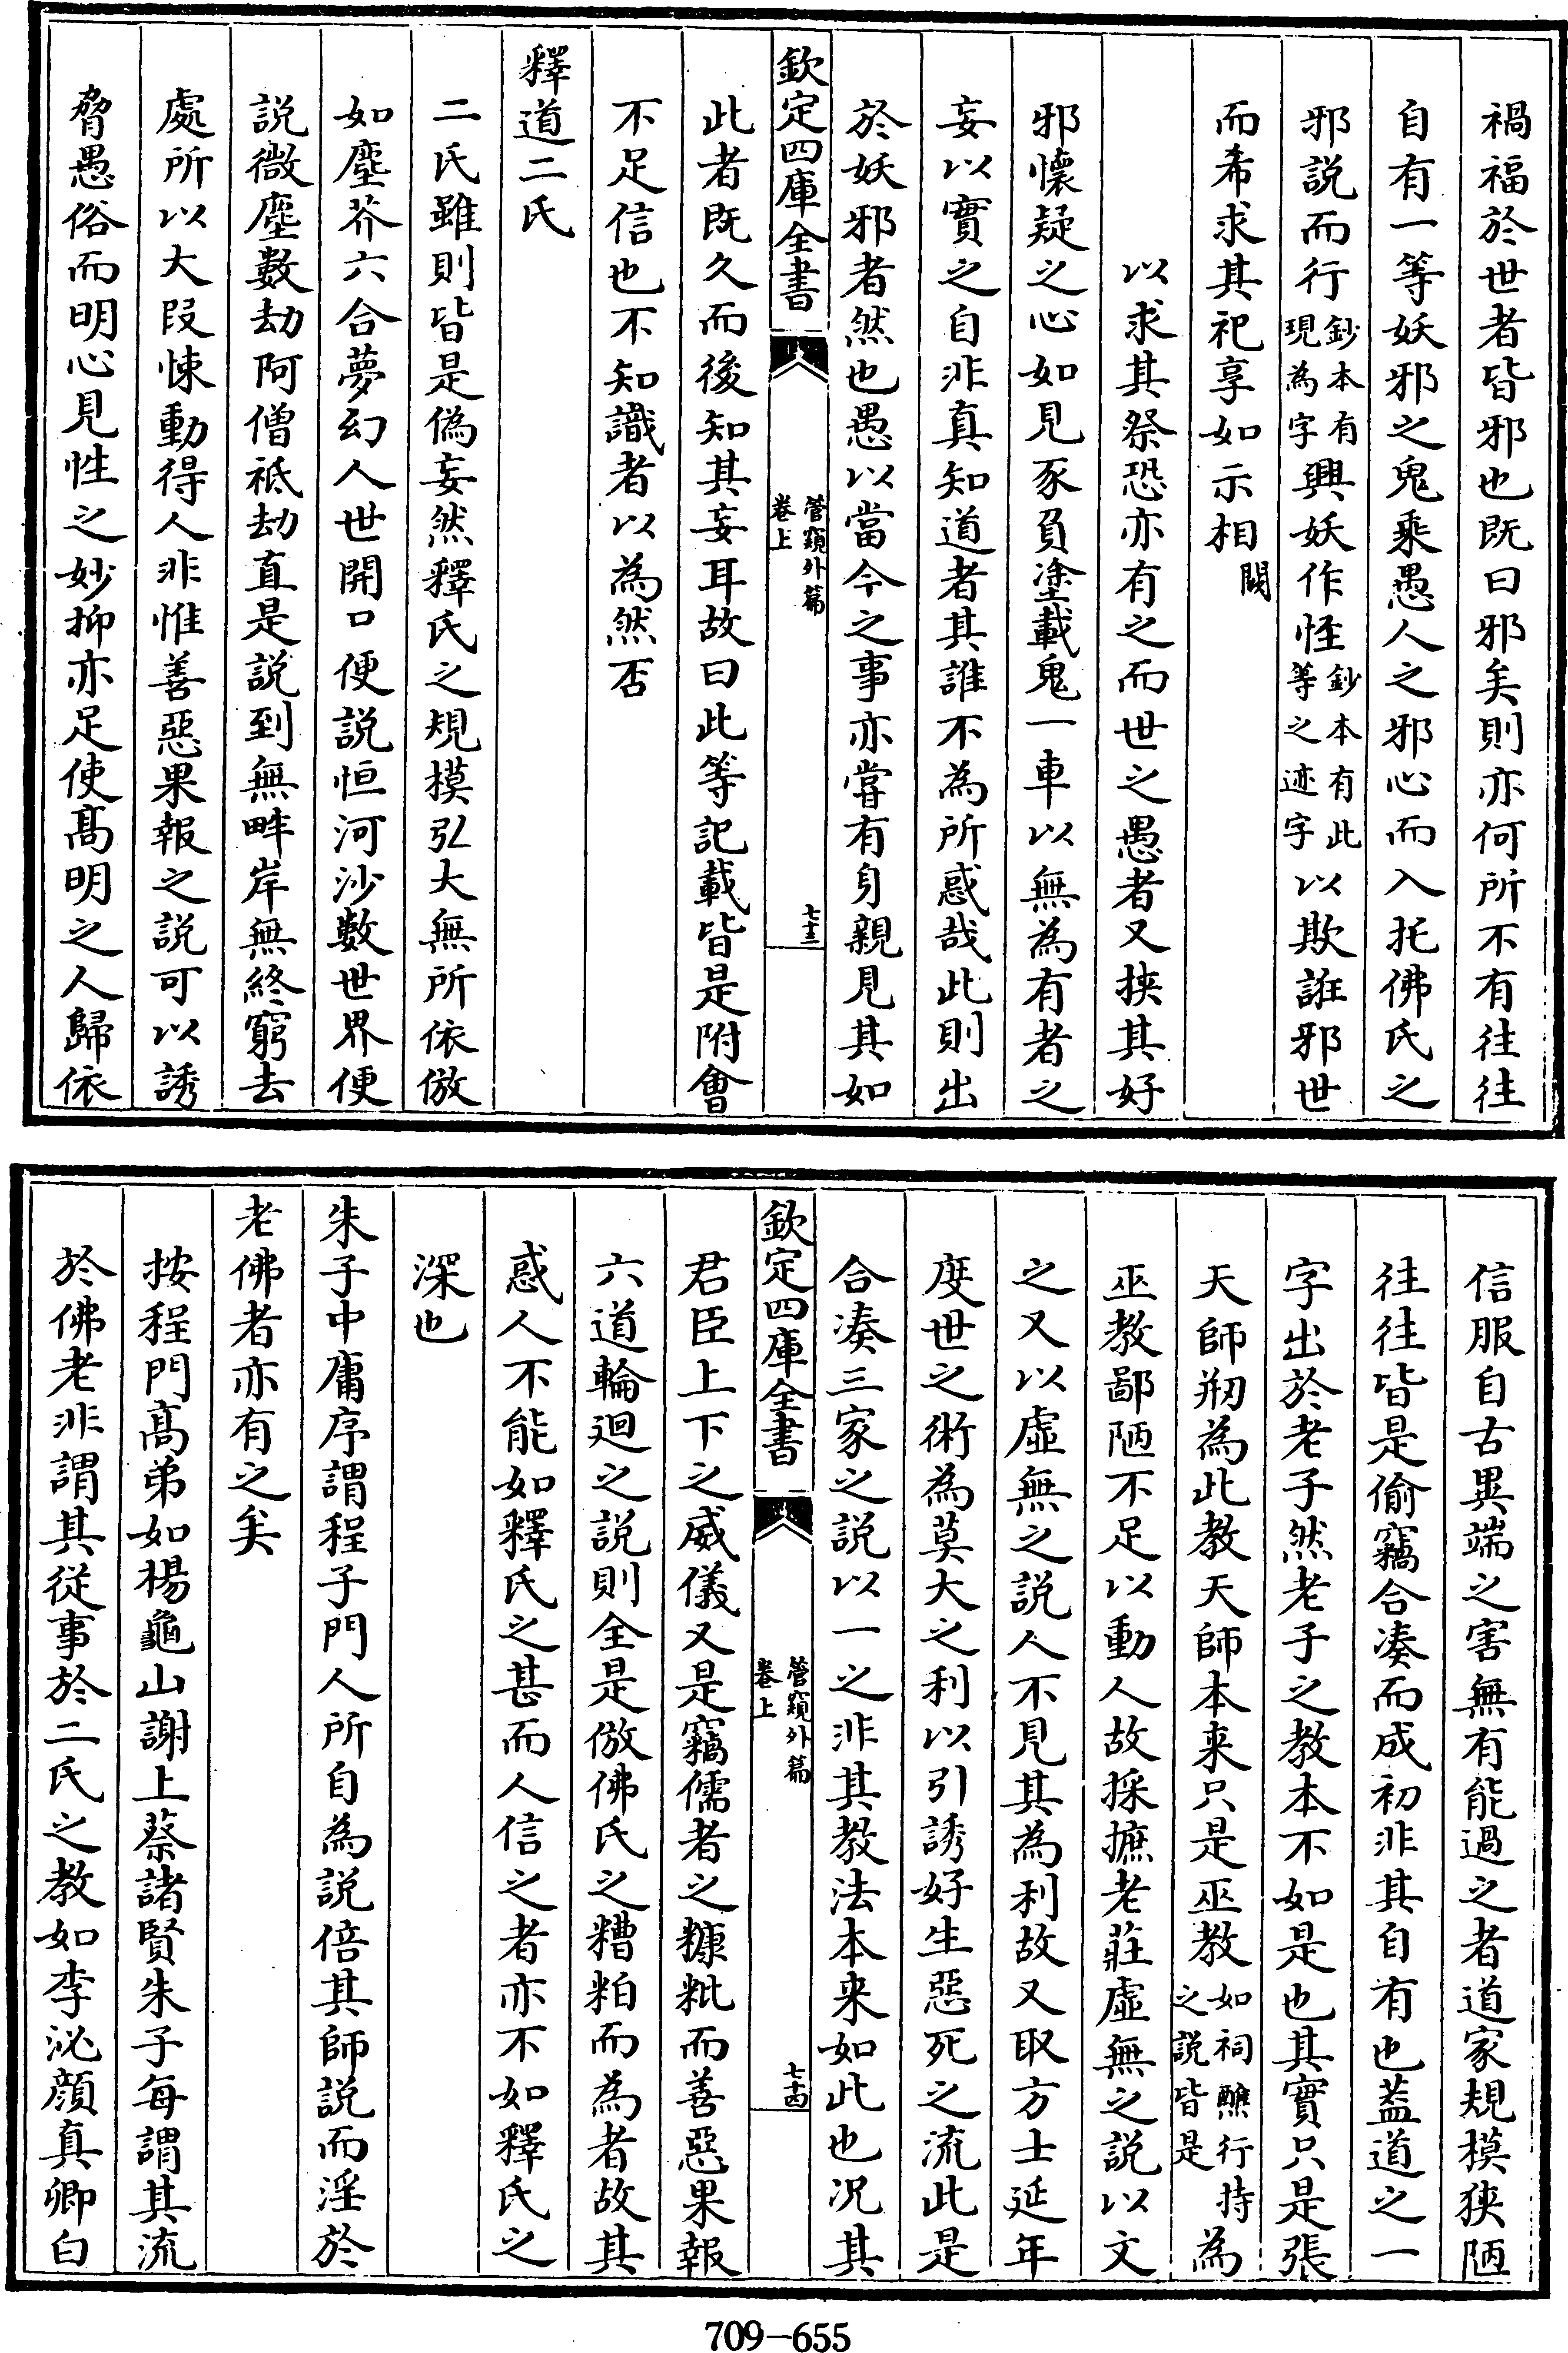 禍福於世者皆邪也既曰邪矣則亦何所不有往往
自有一等妖邪之鬼乘愚人之邪心而入托佛氏之
邪說而行鈔本有現為字興妖作怪鈔本有此等之迹字以欺誑邪世
而希求其祀享如示相闕
以求其祭恐亦有之而世之愚者又挾其好
邪懷疑之心如見豕負塗載鬼一車以無為有者之
妄以實之自非真知道者其誰不為所惑哉此則出
於妖邪者然也愚以當今之事亦嘗有身親見其如
欽定四庫全書
管窺外篇
卷上
七十三
此者既久而後知其妄耳故曰此等記載皆是附會
不足信也不知識者以為然否
釋道二氏
二氏雖則皆是偽妄然釋氏之規模弘大無所依倣
如塵芥六合夢幻人世開口便說恒河沙數世界便
說微塵數劫阿僧祗劫直是說到無畔岸無終窮去
處所以大段悚動得人非惟善惡果報之說可以誘
脅愚俗而明心見性之妙抑亦足使髙明之人歸依
信服自古異端之害無有能過之者道家規模狹陋
往往皆是偷竊合湊而成初非其自有也蓋道之一
字出於老子然老子之教本不如是也其實只是張
天師剏為此教天師本来只是巫教如祠醮行持之說皆是為
巫教鄙陋不足以動人故採摭老莊虛無之說以文
之又以虛無之說人不見其為利故又取方士延年
度世之術為莫大之利以引誘好生惡死之流此是
合湊三家之說以一之非其教法本来如此也况其
欽定四庫全書
管窺外篇
卷上
七十四
君臣上下之威儀又是竊儒者之糠粃而善惡果報
六道輪迴之說則全是倣佛氏之糟粕而為者故其
惑人不能如釋氏之甚而人信之者亦不如釋氏之
深也
朱子中庸序謂程子門人所自為說倍其師說而淫於
老佛者亦有之矣
按程門髙弟如楊龜山謝上蔡諸賢朱子每謂其流
於佛老非謂其從事於二氏之教如李泌顔真卿白
709-655